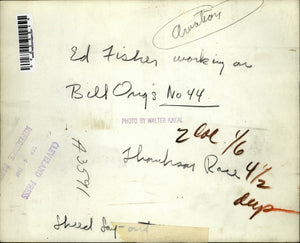 Aviation
Ed Fisher working on
Bill Ong's No 44
PHOTO BY WALTER KNEAL
2 Col 1/6
Thompson Race 4 1/2
deep
A3591
CLEVELAND PRESS
Sheed Lay-out